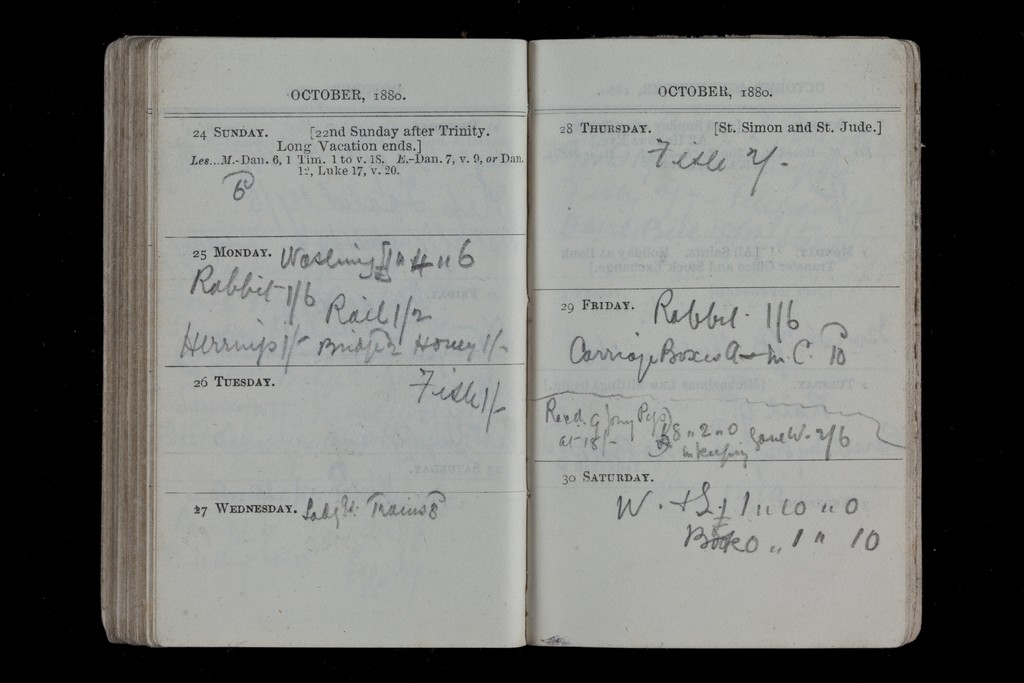 OCTOBER, 1880.
24 SUNDAY. [22nd Sunday after Trinity.
Long Vacation ends.]
Les...M.-Dan. 6, 1 Tim. 1 to v. 18. E.-Dan. 7, v. 9, or Dan.
12, Luke 17, v. 20.
6
25 MONDAY. Washing 4 " 6
Rabbit 1/6
Rail 1/2
Herrings 1/- Honey 1/-
26 TUESDAY. Fish 1/-
27 WEDNESDAY. Trains 8
OCTOBER, 1880.
28 THURSDAY. [St. Simon and St. Jude.]
Fish 2/-
29 FRIDAY. Rabbit - 1/6
Carriage Boxes A & M. C. 10
Recd. 9 Pigs
at 18/- £8 " 2 " 0 Jane W. 2/6
in keeping
30 SATURDAY.
W. + S. £ 1 " 10 " 0
Book 0 " 1 " 10